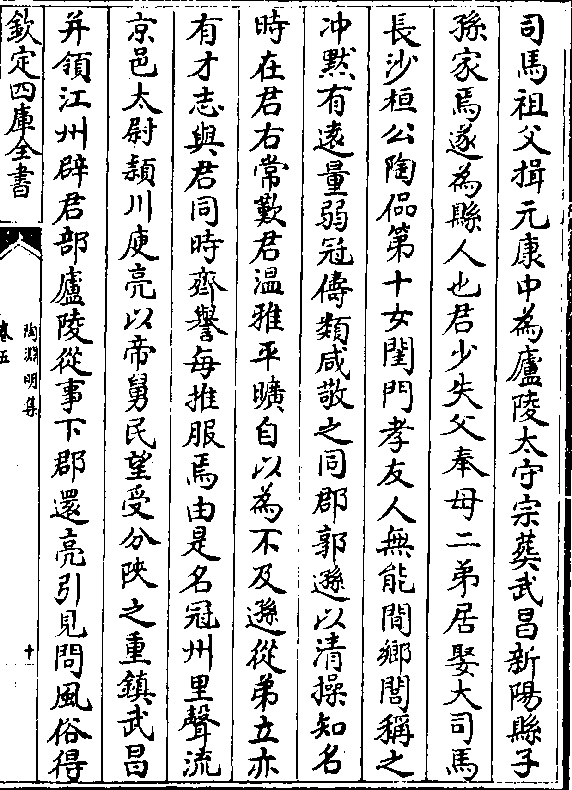 司馬祖父揖元康中為廬陵太守宗葬武昌新陽縣子
孫家焉遂為縣人也君少失父奉母二弟居娶大司馬
長沙桓公陶侃第十女閨門孝友人無能間鄉閭稱之
冲黙有逺量弱冠儔類咸敬之同郡郭遜以清操知名
時在君右常歎君温雅平曠自以為不及遜從弟立亦
有才志與君同時齊譽每推服焉由是名冠州里聲流
京邑太尉頴川庾亮以帝舅民望受分陜之重鎮武昌
并領江州辟君部廬陵從事下郡還亮引見問風俗得
欽定四庫全書
陶淵明集
卷五
十